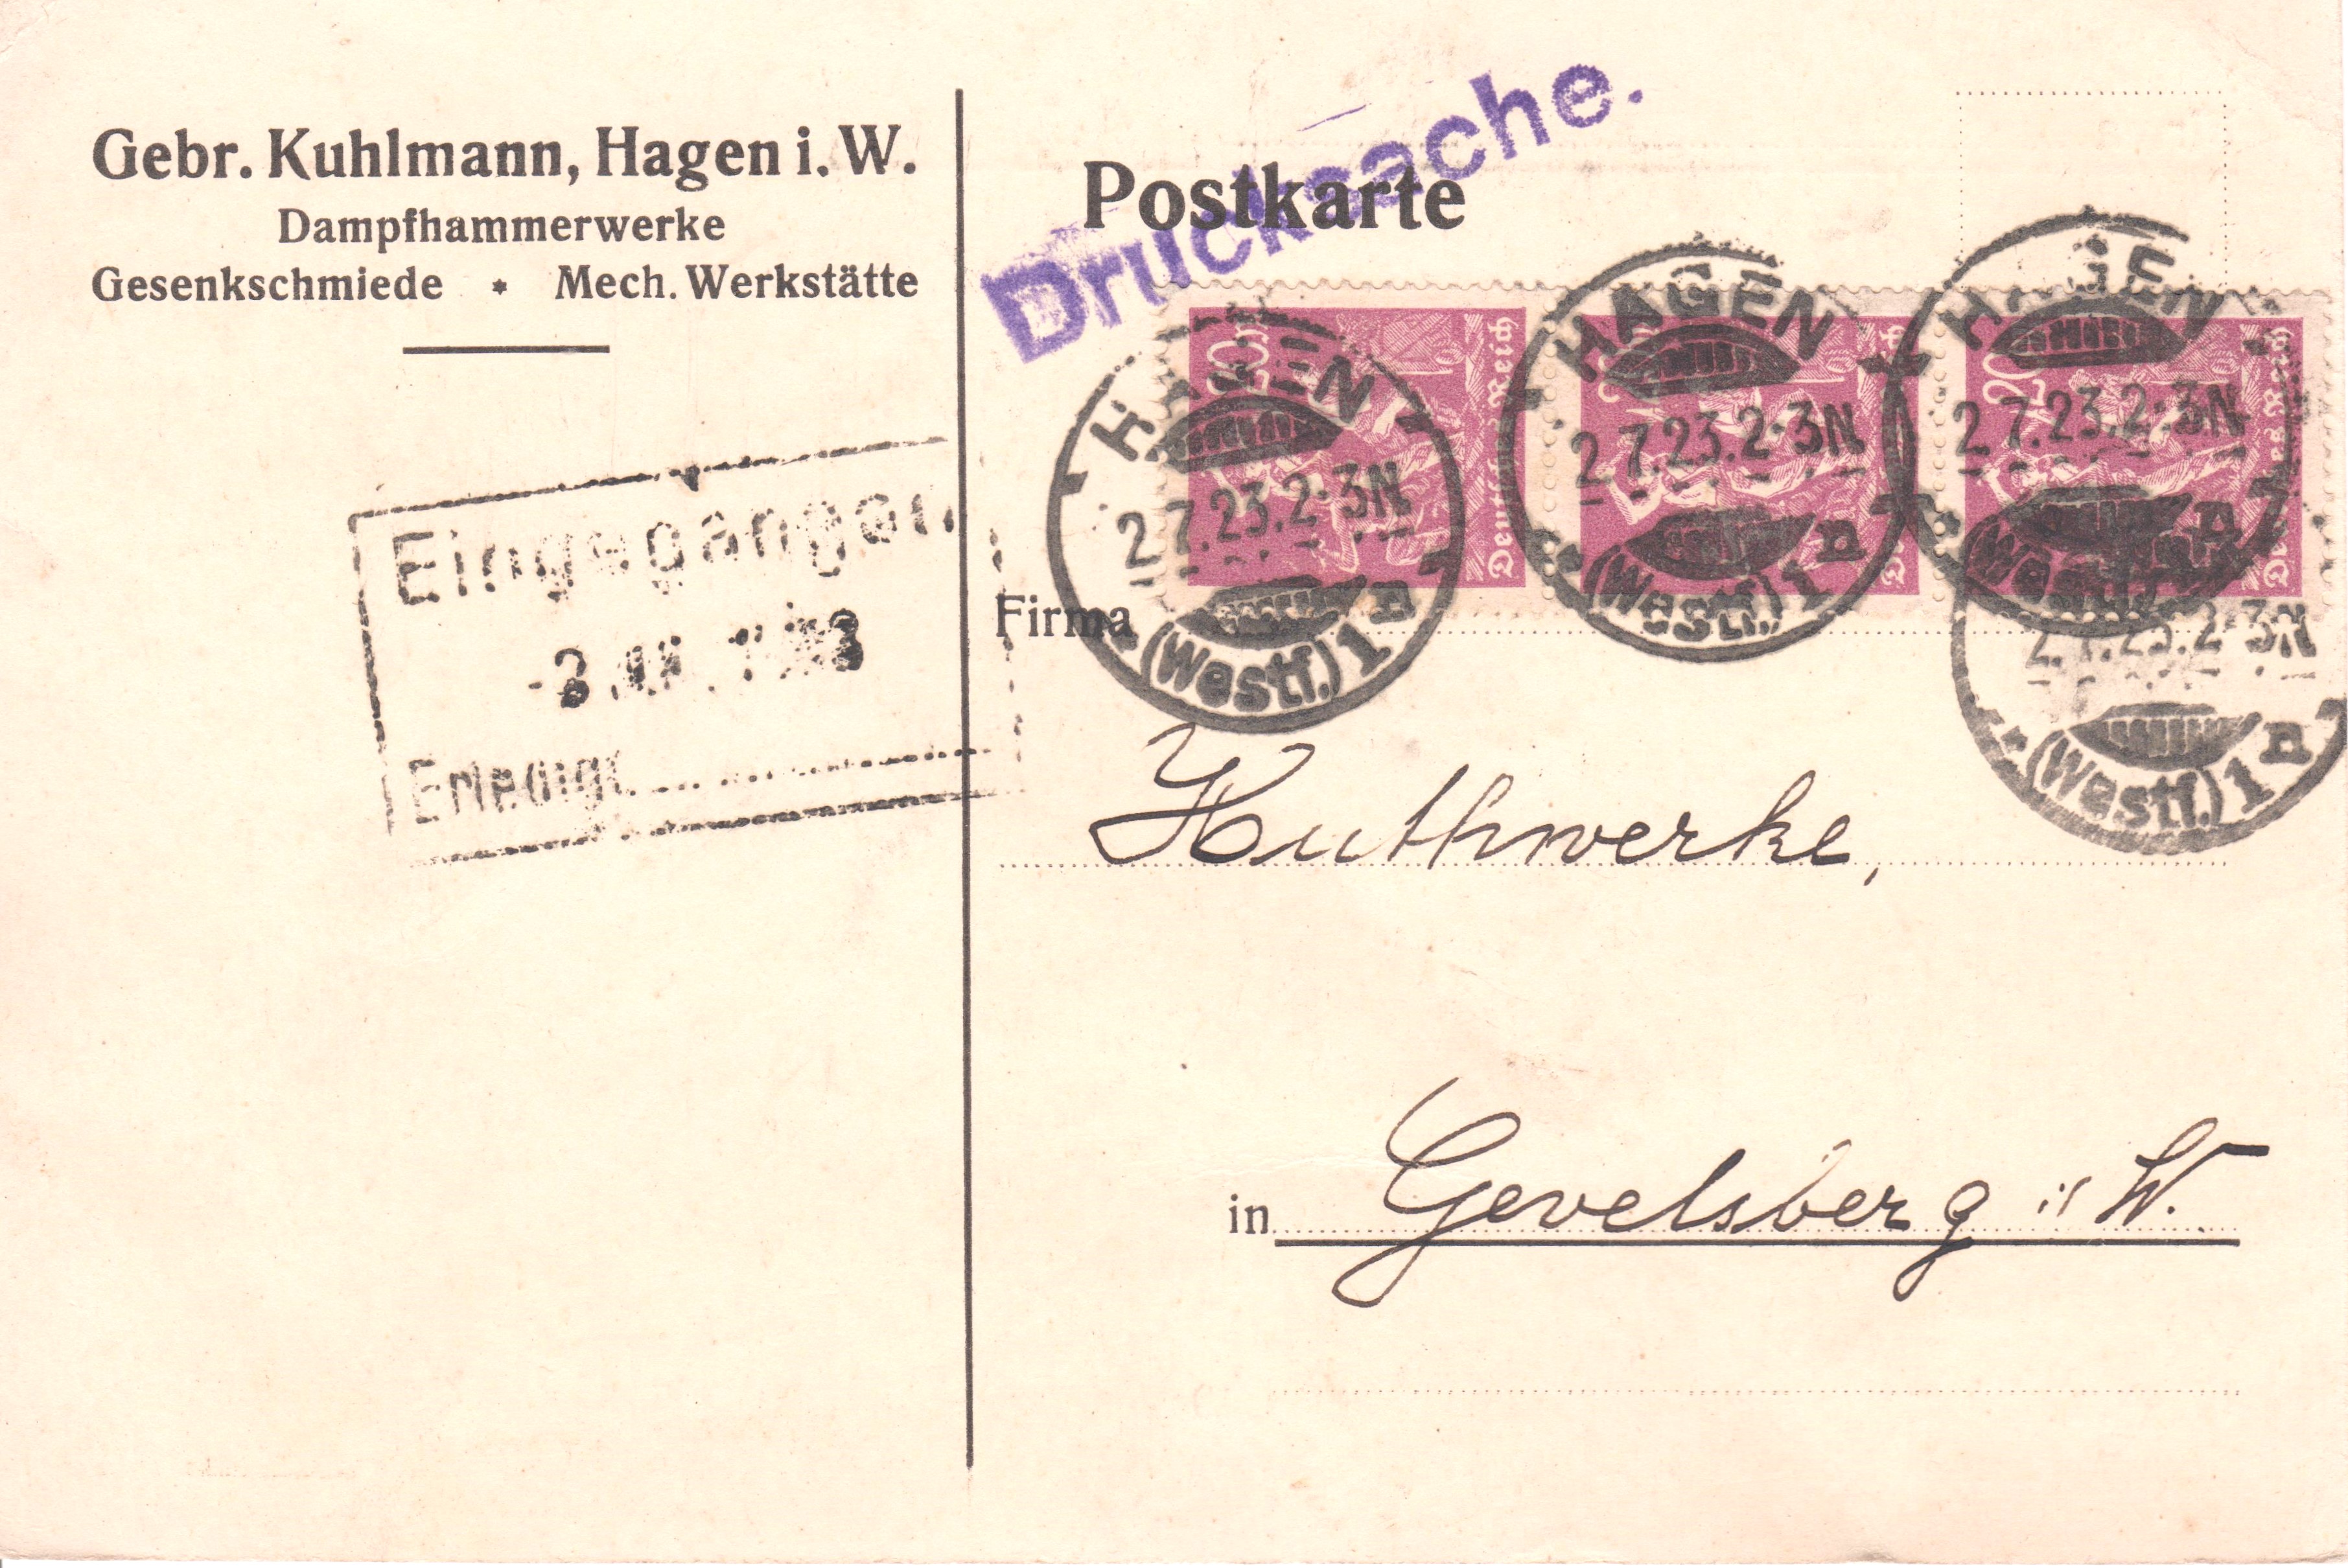 Gebr. Kuhlmann, Hagen i. W.
Dampfhammerwerke
Gesenkschmiede * Mech. Werkstätte
Eingegangen
Erledigt
Drucksache.
Postkarte
20
Deutsches Reich
20
20
HAGEN
2.7.23.2-3N
(Westf.) 1 n
HAGEN
2.7.23.2-3N
(Westf.) 1 n
HAGEN
2.7.23.2-3N
n
2.7.23.2-3N
(Westf.) 1 n
Firma
Huthwerke,
in Gevelsberg i/ W.